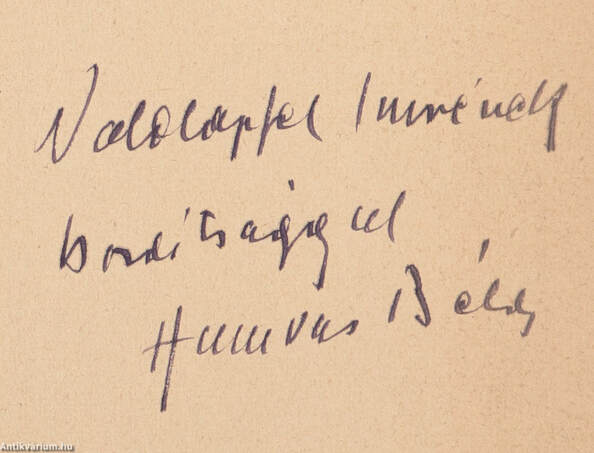 Waldapfel Imrének
barátsággal
Hamvas Béla
Antikvárium.hu